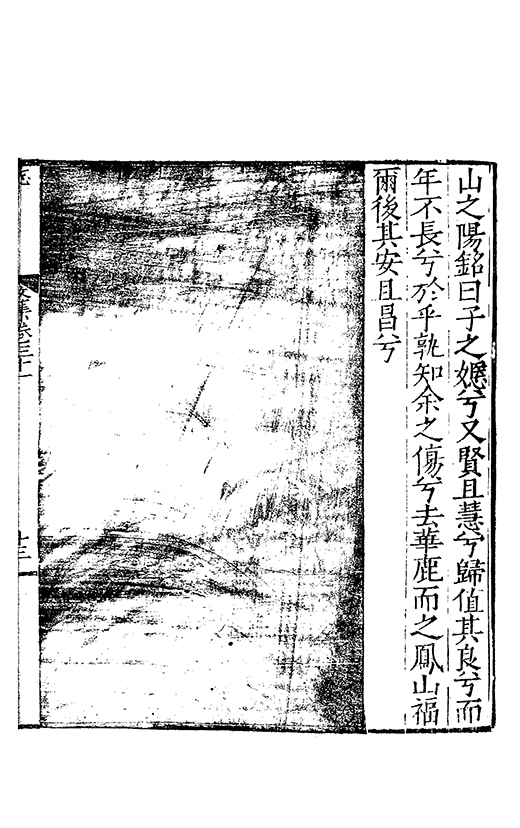 山之陽銘曰子之嫕兮又賢且慧兮歸值其良兮而
年不長兮於乎孰知余之傷兮去華鹿而之鳳山福
爾後其安且昌兮
文集卷三十一
十三